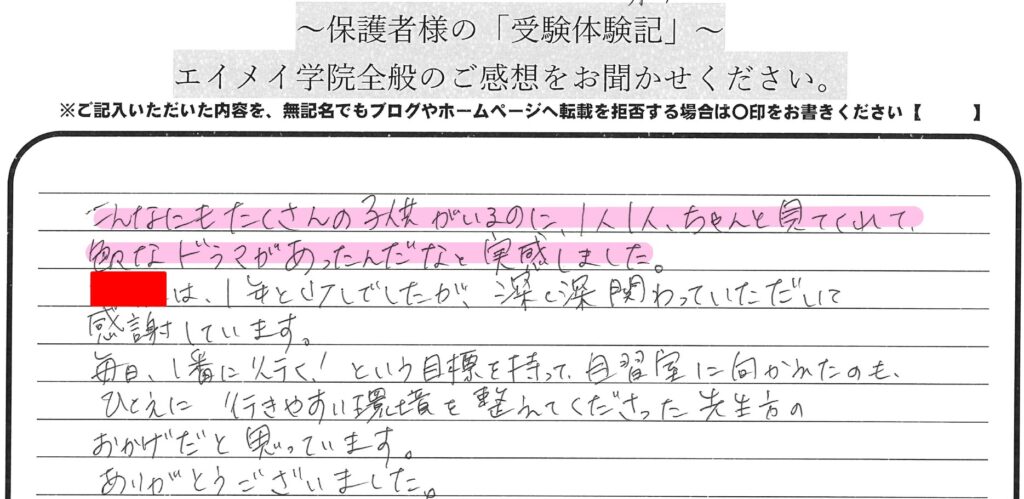 ～保護者様の「受験体験記」～
エイメイ学院全般のご感想をお聞かせください。
※ご記入いただいた内容を、無記名でもブログやホームページへ転載を拒否する場合は〇印をお書きください【　　　】
こんなにもたくさんの子供がいるのに、1人1人、ちゃんと見てくれて、
色々なドラマがあったんだなと実感しました。
は、1年と少しでしたが、深く深く関わっていただいて
感謝しています。
毎日、1番に行く!という目標を持って、自習室に向かえたのも、
ひとえに行きやすい環境を整えてくださった先生方の
おかげだと思っています。
ありがとうございました。